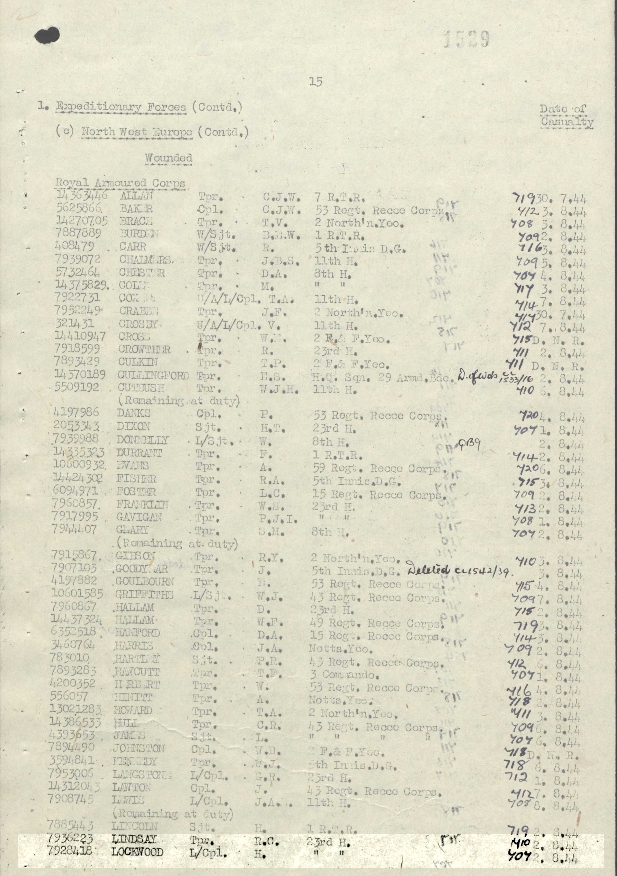 1589
15
1. Expeditionary Forces (Contd.)
Date of
Casualty
(c) North West Europe (Contd.)
Wounded
Royal Armoured Corps
14363446 ALLAN Tpr. C.J.W. 7 R.T.R. 719 30. 7.44
5625866 BAKER Cpl. C.J.W. 53 Regt. Recce Corps. 712 3. 8.44
14270705 Tpr. T.V. 2 North'n.Yeo. 708 8.44
7887889 BURDEN W/Sjt. 1 R.T.R. 709 2. 8.44
408479 CARR W/Sjt. 5th Innis D.G. 716 8.44
7939072 CHALMERS Tpr. J.B.S. 11th H. 709 5. 8.44
5732464 Tpr. D.A. 8th H. 707 4. 8.44
14375829 Tpr. M. " " 717 3. 8.44
7922731 W/A/L/Cpl. T.A. 11th H. 714 7. 8.44
7952249 Tpr. J.F. 2 North'n.Yeo. 30. 7.44
321431 CROSBY W/A/L/Cpl. V. 11th H. 712 7. 8.44
14410947 CROSS Tpr. 2 F & F.Yeo. 715 D. N. R.
7918599 CROWTHER Tpr. R. 23rd H. 711 2. 8.44
7893429 CULKIN Tpr. T.P. 2 F & F.Yeo. 711 D. N. R.
14370189 CULLINGFORD Tpr. H.Q. Sqn. 29 Armd.Bde. 2. 8.44
5509192 Tpr. W.J.H. 11th H. 710 8.44
(Remaining at duty)
4197986 DANKS Cpl. P. 53 Regt. Recce Corps. 720 4. 8.44
2053343 DIXON Sjt. H.T. 23rd H. 707 1. 8.44
7939988 DONNELLY L/Sjt. W. 8th H. 2. 8.44
DURRANT Tpr. F. 1 R.T.R. 714 2. 8.44
10600932 EVANS Tpr. A. 59 Regt. Recce Corps. 720 6. 8.44
14424302 FISHER Tpr. R.A. 5th Innis.D.G. 715 3. 8.44
6094971 FOSTER Tpr. L.C. 15 Regt. Recce Corps. 709 2. 8.44
7960857 FRANKLIN Tpr. 23rd H. 713 2. 8.44
7917995 GAVIGAN Tpr. P.J.I. " " 708 1. 8.44
7944407 Tpr. S.M. 8th H. 707 2. 8.44
(Remaining at duty)
7915867 GIBSON Tpr. R.Y. 2 North'n.Yeo. 710 3. 8.44
7907103 Tpr. J. 5th Innis.D.G. Deleted 1542/39. 8.44
4197882 GOULBOURN Tpr. 53 Regt. Recce Corps. 715 4. 8.44
10601585 GRIFFITHS L/Sjt. W.J. 43 Regt. Recce Corps. 709 7. 8.44
7960867 HALLAM Tpr. D. 23rd H. 715 2. 8.44
14437324 HALLAM Tpr. W.F. 49 Regt. Recce Corps. 719 8.44
6352518 HANFORD Cpl. D.A. 15 Regt. Recce Corps. 714 3. 8.44
3460764 HARRIS Cpl. J.A. Notts.Yeo. 709 2. 8.44
783010 HARTLEY Sjt. P.R. 43 Regt. Recce Corps. 712 6. 8.44
7893283 Tpr. T.F. 3 Comando. 707 1. 8.44
4200352 Tpr. W. 53 Regt. Recce Corps. 716 4. 8.44
556057 Tpr. A. Notts.Yeo. 718 2. 8.44
13021283 HOWARD Tpr. T.A. 2 North'n.Yeo. 711 3. 8.44
14386533 HULL Tpr. C.R. 43 Regt. Recce Corps. 709 6. 8.44
4393653 JAMES Sjt. L. " " " " 707 6. 8.44
7894490 JOHNSTON Cpl. W.D. 2 F & F.Yeo. 718 D. N. R.
3594841 Tpr. W.J. 5th Innis.D.G. 718 8. 8.44
7953006 L/Cpl. 23rd H. 712 1. 8.44
14312043 LAWTON Cpl. J. 43 Regt. Recce Corps. 712 7. 8.44
7908745 LEWIS L/Cpl. J.A. 11th H. 708 8. 8.44
(Remaining at duty)
7885443 LINCOLN Sjt. H. 1 R.T.R. 719 2. 8.44
7936223 LINDSAY Tpr. R.C. 23rd H. 710 2. 8.44
7928418 LOCKWOOD L/Cpl. H. " " 707 2. 8.44